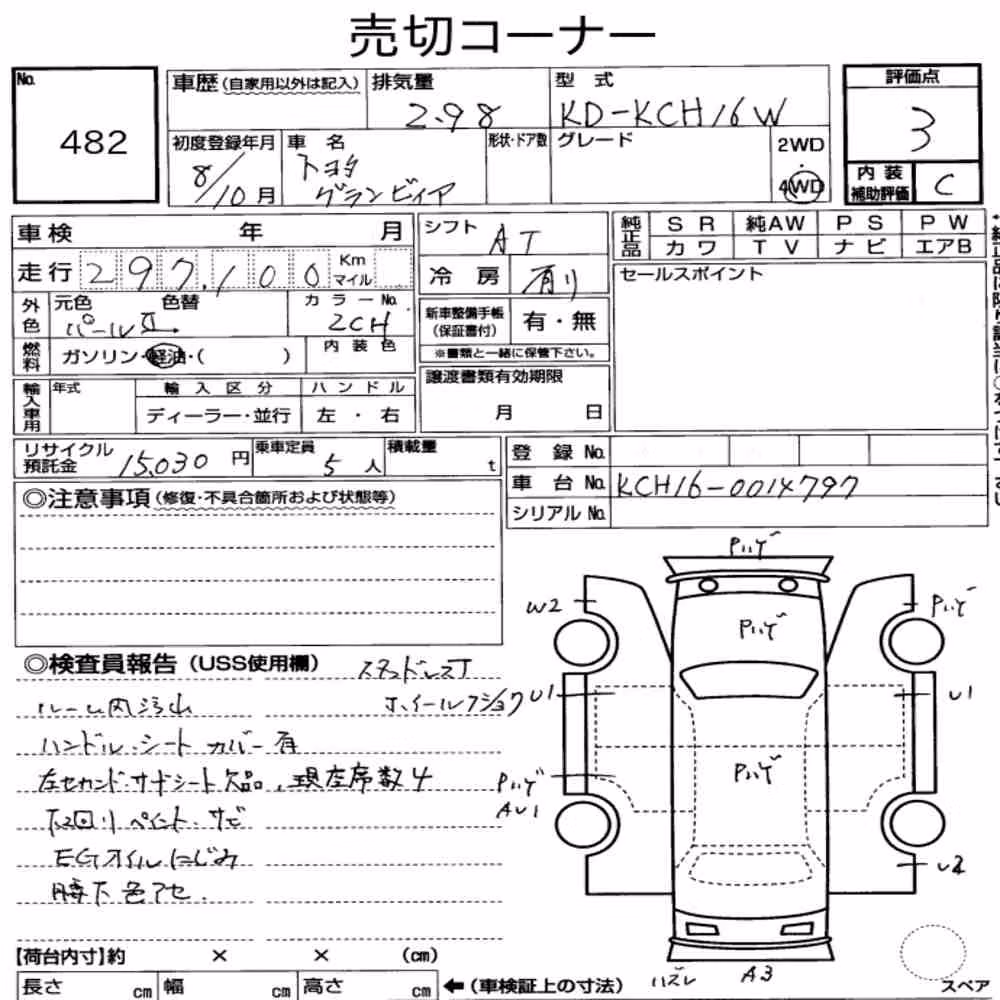 売切コーナー
No. 482
車歴 (自家用以外は記入)
排気量 2.98
型式 KD-KCH16W
評価点 3
初度登録年月 8/10月
車名 トヨタ グランビィア
形状・ドア数
グレード
2WD ・ 4WD
内装補助評価 C
車検 年 月
走行 297,100 Km マイル
シフト AT
冷房 有り
純正品 SR 純AW PS PW
カワ TV ナビ エアB
外色 元色 色替 パールⅡ
カラーNo. 2CH
新車整備手帳(保証書付) 有・無
※書類と一緒に保管下さい。
セールスポイント
燃料 ガソリン・軽油・( )
内装色
輸入車用 年式 輸入区分 ハンドル
ディーラー・並行 左・右
譲渡書類有効期限
月 日
リサイクル預託金 15,030円
乗車定員 5人
積載量 t
登録No.
車台No. KCH16-0014797
シリアルNo.
◎注意事項(修復・不具合箇所および状態等)
◎検査員報告(USS使用欄)
スタッドレスT
ルーム内汚れ
ホイールフショク
ハンドル・シートカバー有
左セカンド・サードシート欠品、現在席数4
下回りペイント・サビ
EGオイルにじみ
腰下色アセ.
Pハゲ
W2
Pハゲ
Pハゲ
U1
U1
Pハゲ
AU1
Pハゲ
U2
ハズレ A3
【荷台内寸】約 × × (cm)
長さ cm 幅 cm 高さ cm
←(車検証上の寸法)
スペア